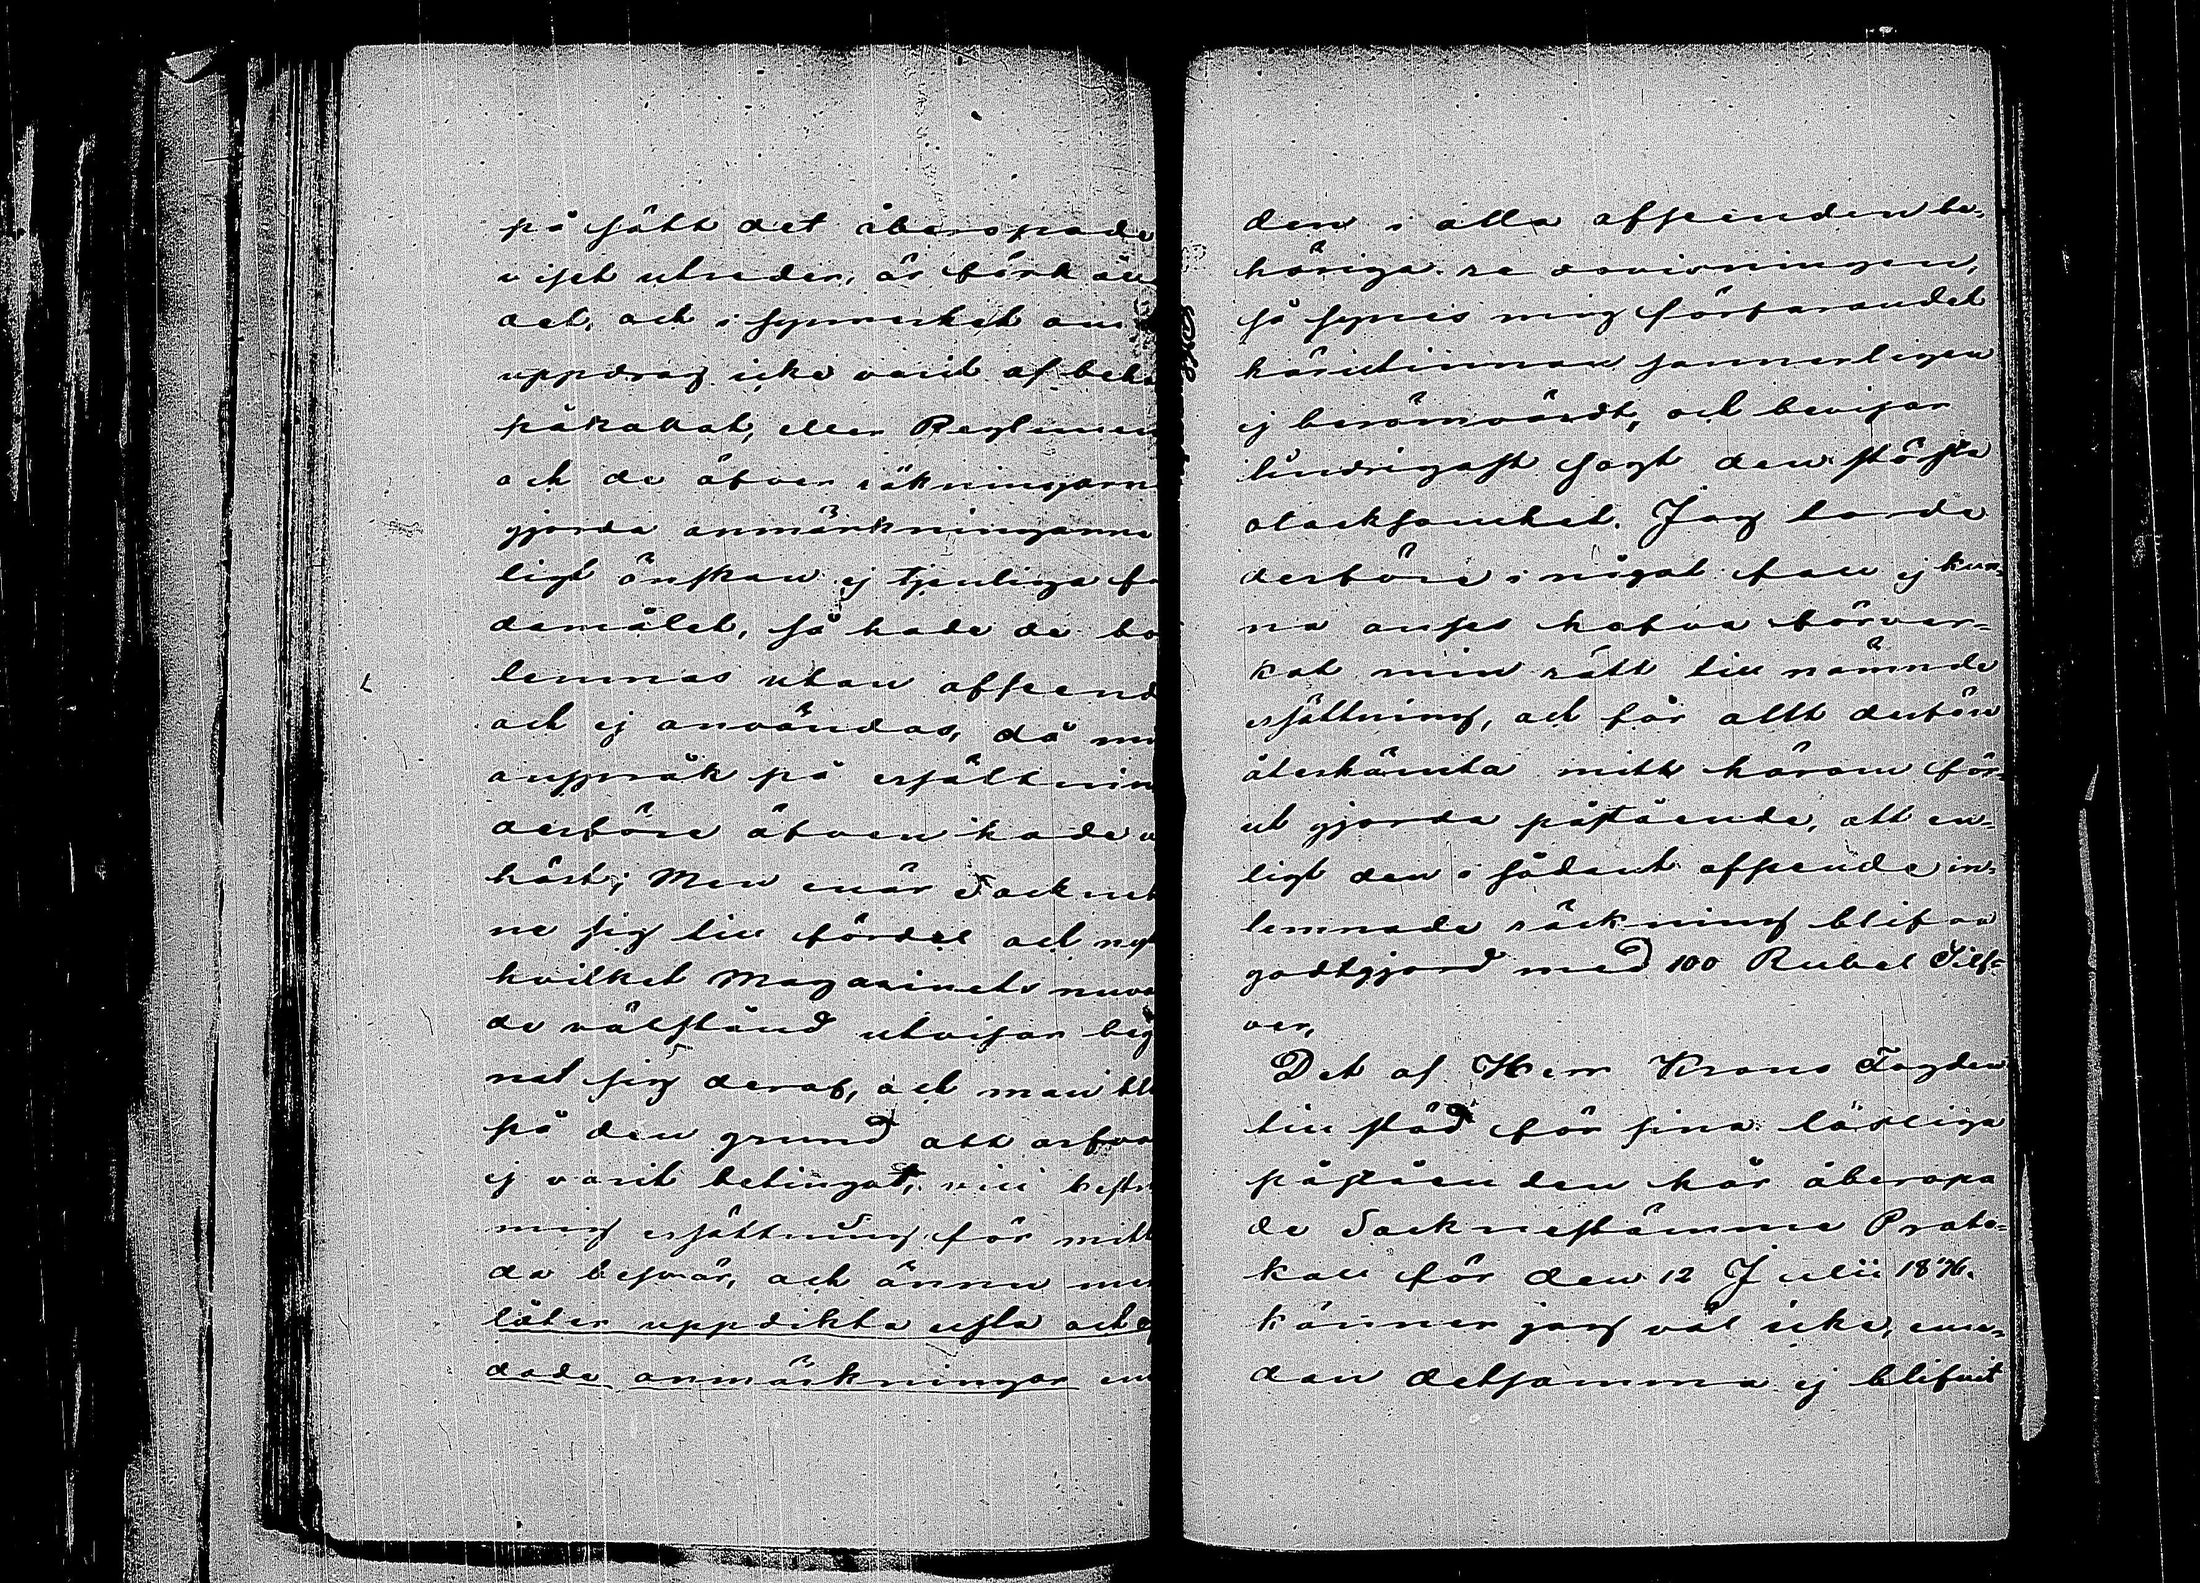 på sätt det åberopade
viset utreder, är förhån
det, och i synnerhet om
uppdrag icke varit af beh
påkallat, eller Reglimen
och de öfver räkningarn
gjorda anmärkningarne
ligt önskan ej tjenliga fo
damålet, så hade de bo
lemnas utan afseend
och ej användas, då mi
anspråk på ersättnin
derföre äfven hade u
hört; Men enär Socknet
ne sig till fördel och nyt
hvilket Magasinets nuva
de välstånd utvisar beg
nat sig deraf, och man bl
på den grund att arfvo
ej varit betingat, vill bestr
mig ersättning för mitt
da besvär, och ännu me
låter uppdikta usla och
dade anmärkningar em
den i alla afseenden be-
höriga redovisningen,
så synes mig förfarandet
härutinnan sannerligen
ej berömvärdt, och bevisar
lindrigast sagt den största
otacksamhet. Jag torde
derföre i något fall ej kun-
na anses hafva förver-
kat min rätt till nämnde
ersättning, och får allt derföre
återhämta mitt härom för-
ut gjorda påstående, att en-
ligt den i sådant afseende in-
lemnade räckning blifva
godtgjord med 100 Rubel Silf-
ver,
Det af Herr Krono Fogden
till stöd för sina löseliga
påståenden här åberopa
de Socknestämme Proto-
koll för den 12 Julii 1876.
känner jag väl icke, eme-
dan detsamma ej blifvit